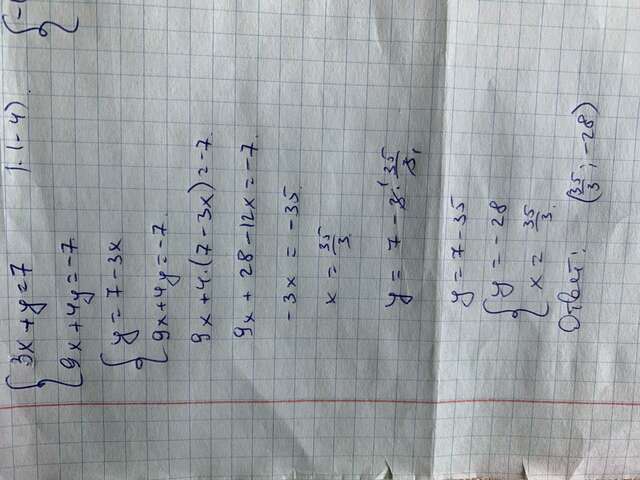 { 3x + y = 7 | · (-4)
9x + 4y = -7
{ y = 7 - 3x
9x + 4y = -7
9x + 4 · (7 - 3x) = -7
9x + 28 - 12x = -7
-3x = -35
x = 35/3
y = 7 - 3 · 35/3
y = 7 - 35
{ y = -28
x = 35/3
Ответ: (35/3; -28)